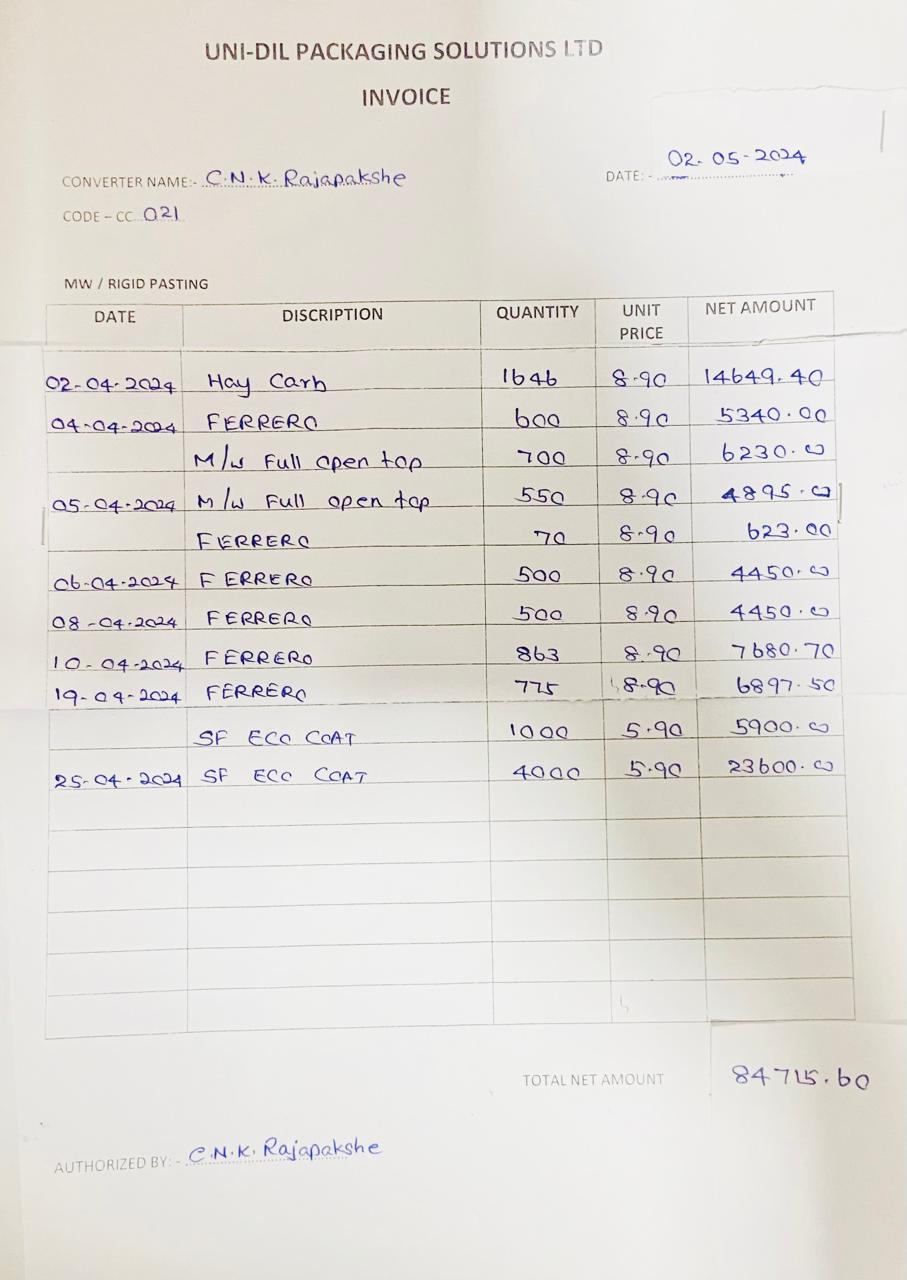 UNI-DIL PACKAGING SOLUTIONS LTD
INVOICE
CONVERTER NAME:- C.N.K. Rajapakshe
DATE: - 02-05-2024
CODE – CC 021
MW / RIGID PASTING
DATE DISCRIPTION QUANTITY UNIT PRICE NET AMOUNT
02-04-2024 Hay Carb 1646 8.90 14649.40
04-04-2024 FERRERO 600 8.90 5340.00
M/w Full open top 700 8.90 6230.00
05-04-2024 M/w Full open top 550 8.90 4895.00
FERRERO 70 8.90 623.00
06-04-2024 FERRERO 500 8.90 4450.00
08-04-2024 FERRERO 500 8.90 4450.00
10-04-2024 FERRERO 863 8.90 7680.70
19-04-2024 FERRERO 775 8.90 6897.50
SF ECO COAT 1000 5.90 5900.00
25-04-2024 SF ECO COAT 4000 5.90 23600.00
TOTAL NET AMOUNT 84715.60
AUTHORIZED BY: - C.N.K. Rajapakshe